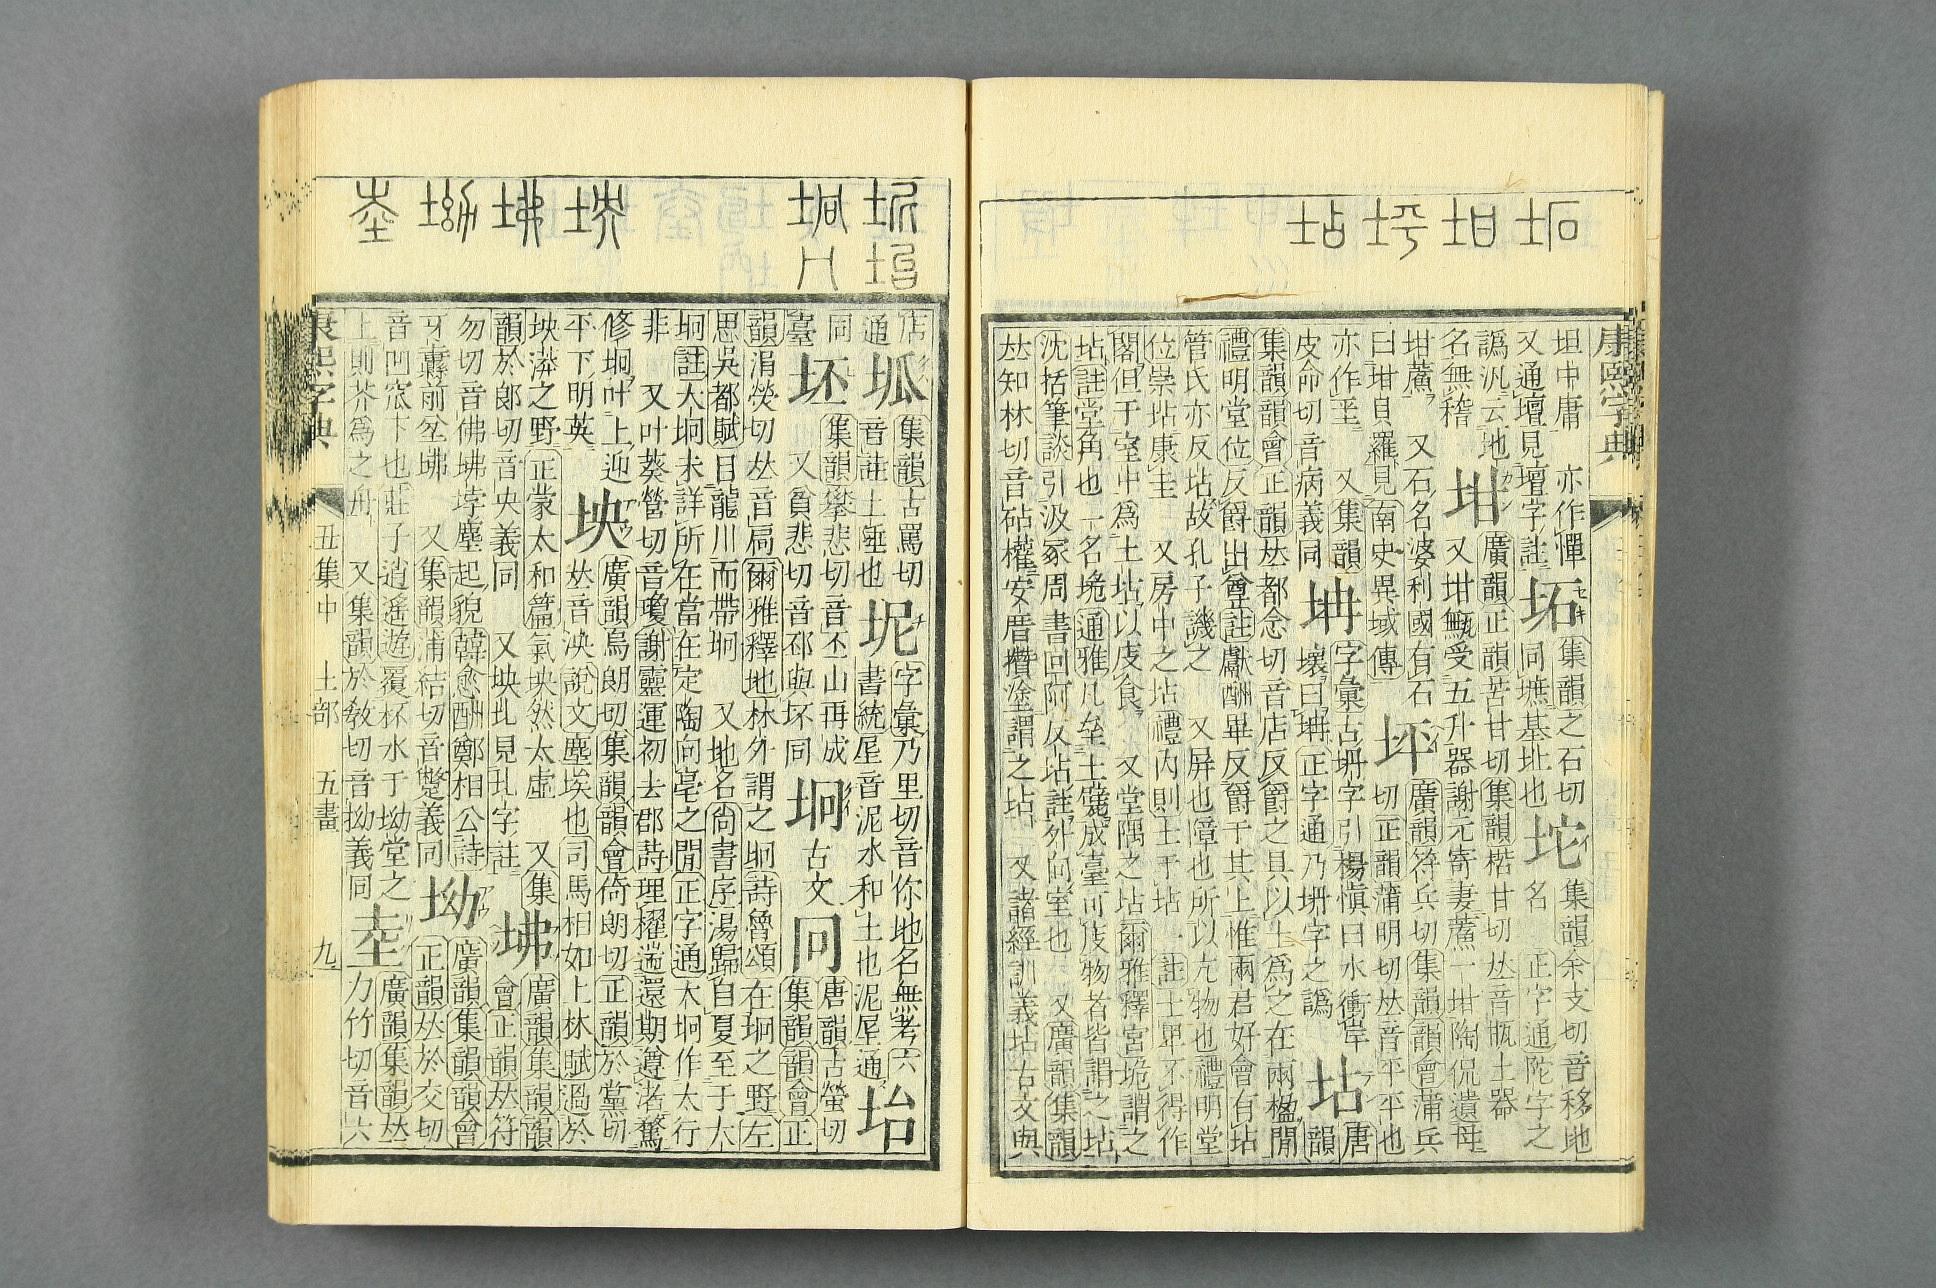 康熙字典
坧 坩 坪 坫
坦中庸　亦作憚　集韻之石切　集韻余支切音移地
又通壇見壇字註　坧　同墌基址也　坨　名　正字通陀字之
譌汎云地　廣韻正韻苦甘切集韻楷甘切𠀤音㼭土器
名無稽　坩　又坩甒受五升器謝元寄妻鮺一坩陶侃遺母
坩鮺　又石名婆利國有石　廣韻符兵切集韻韻會蒲兵
曰坩貝羅見南史異域傳　坪　切正韻蒲明切𠀤音平平也
亦作𡊞　又集韻　字彙古坍字引楊愼曰水衝岸　唐
皮命切音病義同　坢　壞曰坢正字通乃坍字之譌　坫　韻
集韻韻會正韻𠀤都念切音店反爵之具以土爲之在兩楹閒
禮明堂位反爵出尊註獻酬畢反爵于其上惟兩君好會有坫
管氏亦反坫故孔子譏之　又屏也障也所以亢物也禮明堂
位崇坫康圭　又房中之坫禮內則士于坫一註士卑不得作
閣但于室中爲土坫以庋食　又堂隅之坫爾雅釋宮垝謂之
坫註堂角也一名垝通雅凡壘土甓成臺可庋物者皆謂之坫
沈括筆談引汲冢周書回阿反坫註外向室也　又廣韻集韻
𠀤知林切音砧權安厝攢塗謂之坫　又諸經訓義坫古文與
店　集韻古罵切　字彙乃里切音你地名無考六
通　坬　音註土埵也　坭　書統星音泥水和土也泥屋通　坮
同　集韻攀悲切音丕山再成　唐韻古螢切
臺　坯　又貧悲切音邳與坏同　坰　古文　冋　集韻韻會正
韻涓熒切𠀤音扃爾雅釋地林外謂之坰詩魯頌在坰之野左
思吳都賦目龍川而帶坰　又地名尙書序湯歸自夏至于大
坰註大坰未詳所在當在定陶向亳之閒正字通大坰作太行
非　又叶葵營切音瓊謝靈運初去郡詩理櫂遄還期遵渚驚
修坰叶上迎　廣韻烏朗切集韻韻會倚朗切正韻於黨切
平下明英　坱　𠀤音泱說文塵埃也司馬相如上林賦過於
坱漭之野正蒙太和篇氣坱然太虛　又集　廣韻集韻韻
韻於郞切音央義同　又坱圠見圠字註　坲　會正韻𠀤符
勿切音佛坲㘸塵起貌韓愈酬鄭相公詩　廣韻集韻韻會
牙纛前坌坲　又集韻蒲結切音蹩義同　坳　正韻𠀤於交切
音凹窊下也莊子逍遙遊覆杯水于坳堂之　廣韻集韻𠀤
上則芥爲之舟　又集韻於敎切音拗義同　坴　力竹切音六
康熙字典　丑集中　土部　五畫　九